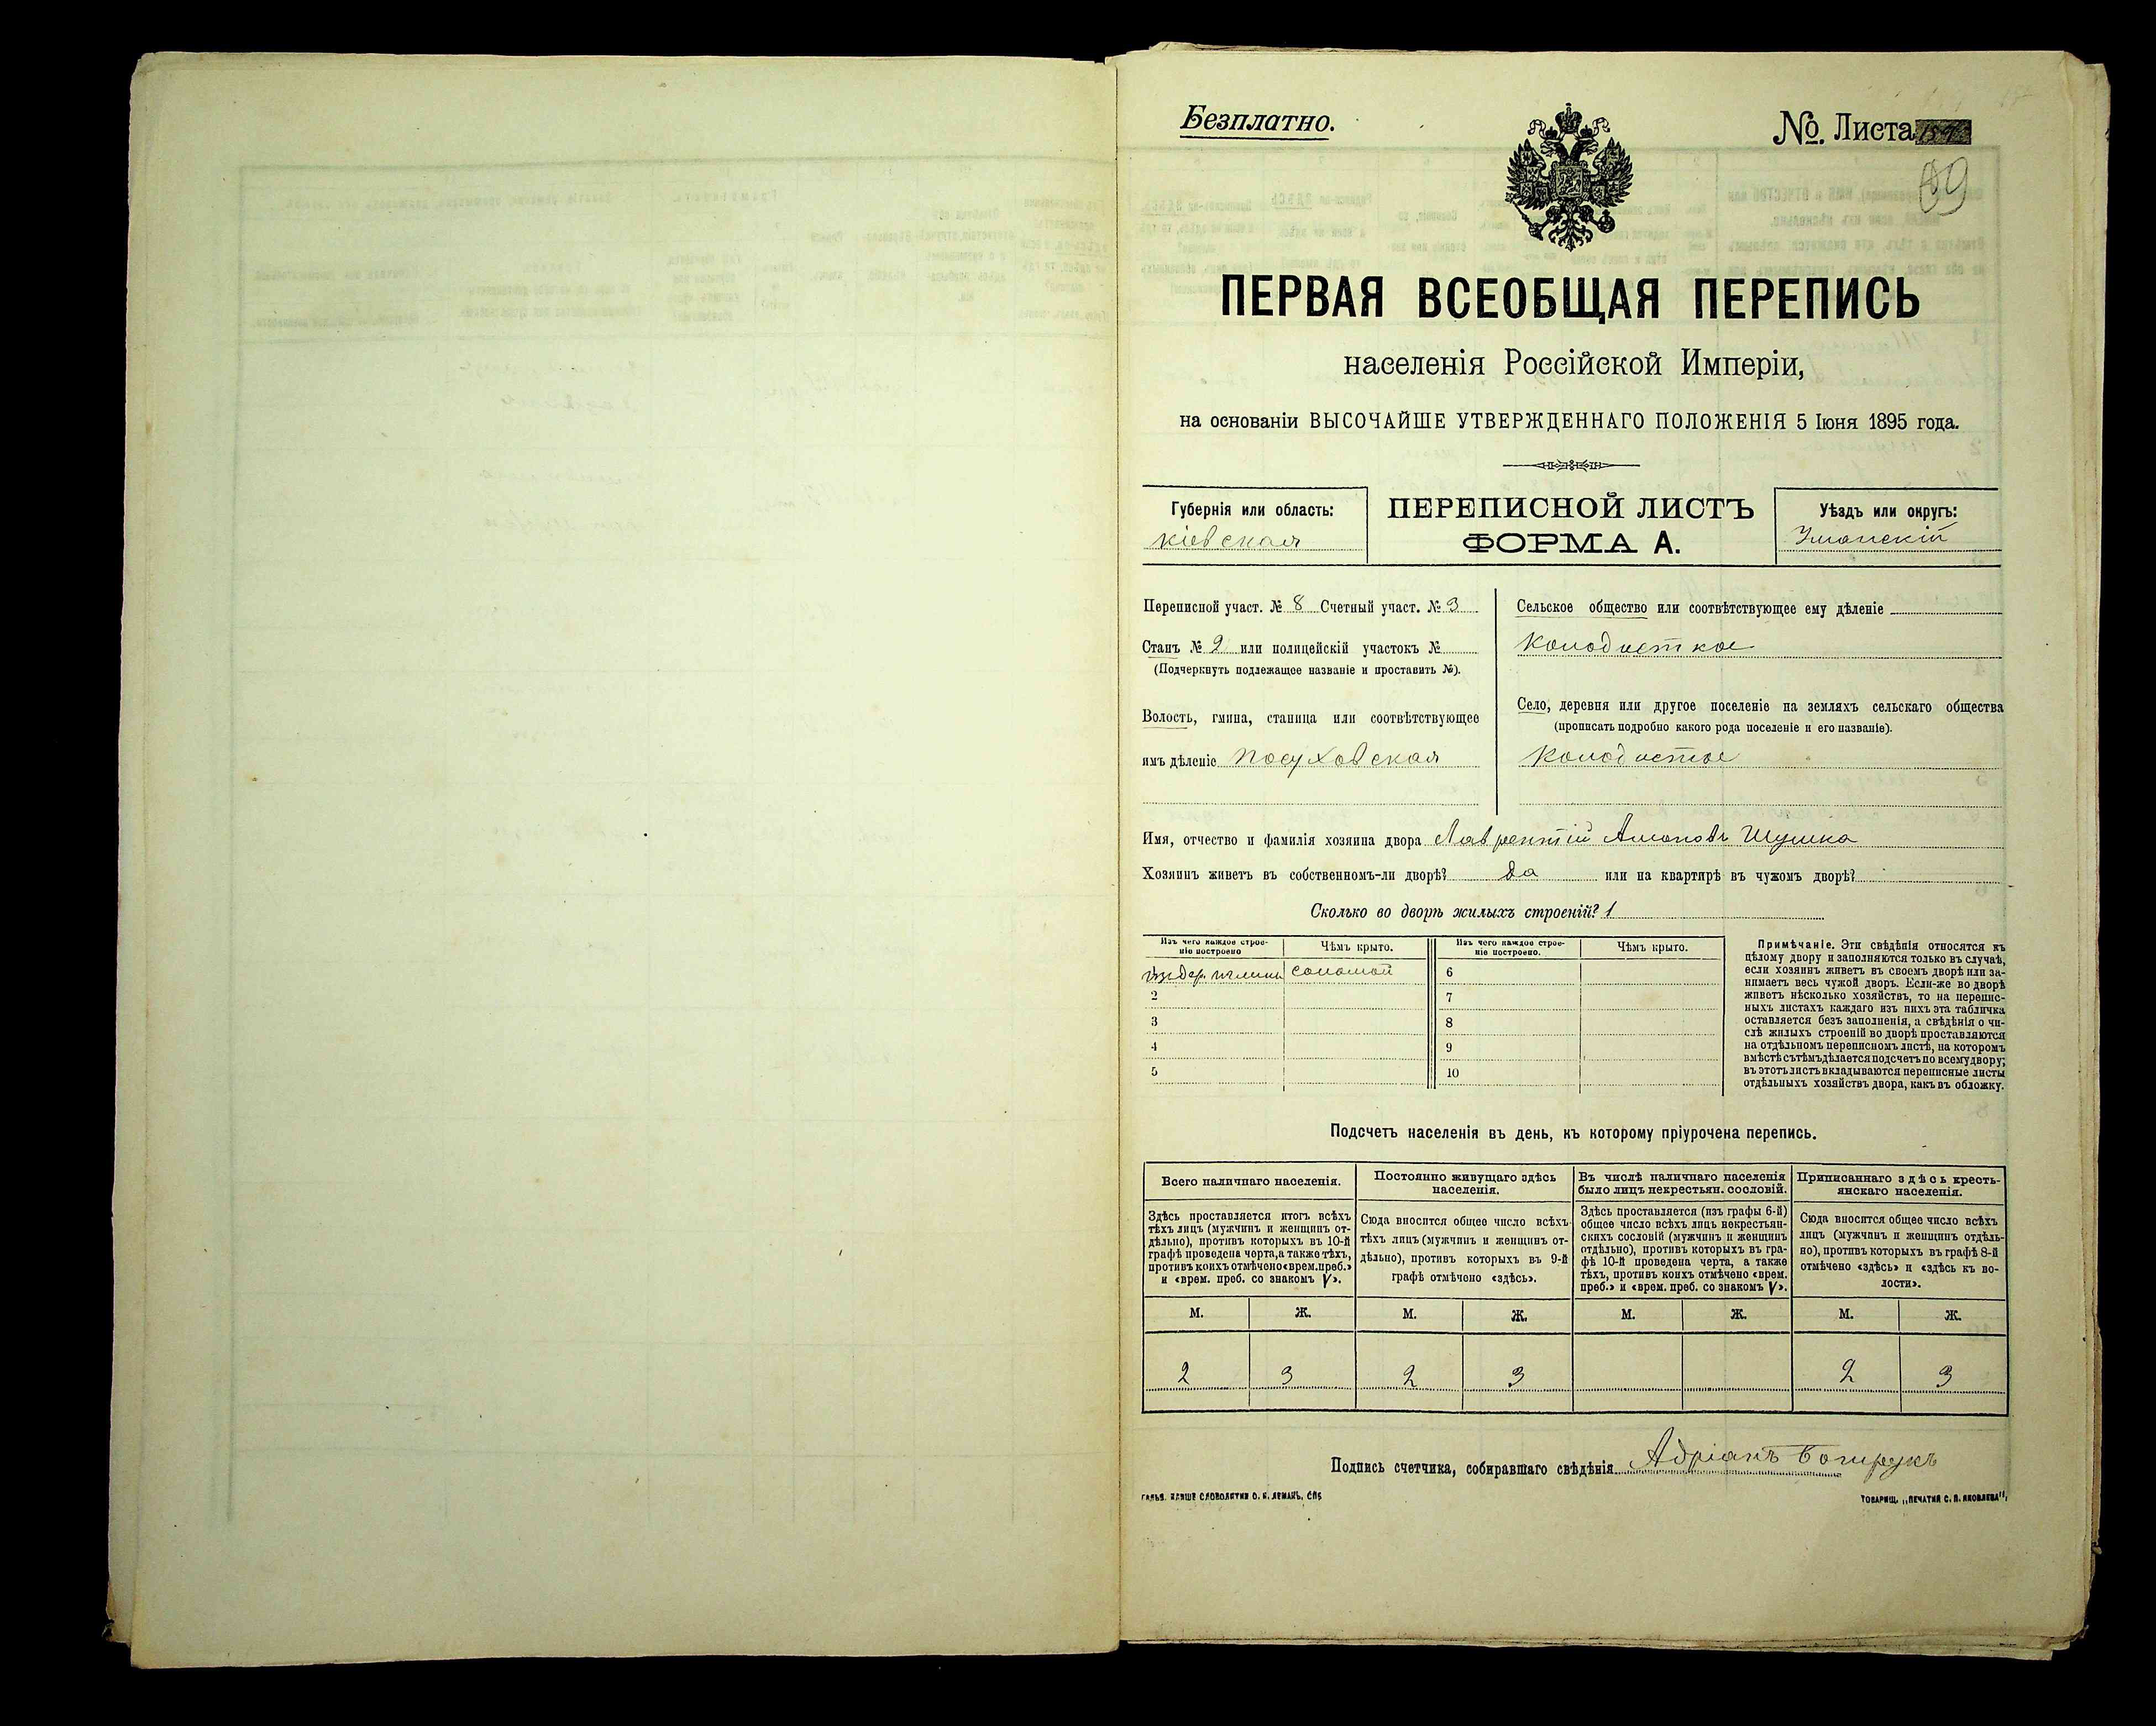 Безплатно.
№ Листа
89
ПЕРВАЯ ВСЕОБЩАЯ ПЕРЕПИСЬ
населенія Россійской Имперіи,
на основаніи ВЫСОЧАЙШЕ УТВЕРЖДЕННАГО ПОЛОЖЕНІЯ 5 Іюня 1895 года.
Губернія или область:
Кіевская
ПЕРЕПИСНОЙ ЛИСТЪ
ФОРМА А.
Уѣздъ или округъ:
Уманскій
Переписной участ. № 8 Счетный участ. № 3
Станъ № 2 или полицейскій участокъ №
(Подчеркнуть подлежащее названіе и проставить №).
Волость, гмина, станица или соотвѣтствующее
имъ дѣленіе Посуховская
Сельское общество или соотвѣтствующее ему дѣленіе
Колодисткое
Село, деревня или другое поселеніе на земляхъ сельскаго общества
(прописать подробно какого рода поселеніе и его названіе).
Колодистое
Имя, отчество и фамилія хозяина двора Лаврентій Шушка
Хозяинъ живетъ въ собственномъ-ли дворѣ? Да или на квартирѣ въ чужомъ дворѣ?
Сколько во дворѣ жилыхъ строеній? 1
Изъ чего каждое строе-
ніе построено
Чѣмъ крыто.
Изъ чего каждое строе-
ніе построено.
Чѣмъ крыто.
соломой
6
2
7
3
8
4
9
5
10
Примѣчаніе. Эти свѣдѣнія относятся къ
цѣлому двору и заполняются только въ случаѣ,
если хозяинъ живетъ въ своемъ дворѣ или за-
нимаетъ весь чужой дворъ. Если-же во дворѣ
живетъ нѣсколько хозяйствъ, то на перепис-
ныхъ листахъ каждаго изъ нихъ эта табличка
оставляется безъ заполненія, а свѣдѣнія о чи-
слѣ жилыхъ строеній во дворѣ проставляются
на отдѣльномъ переписномъ листѣ, на которомъ
вмѣстѣ съ тѣмъ дѣлается подсчетъ по всему двору;
въ этотъ листъ вкладываются переписные листы
отдѣльныхъ хозяйствъ двора, какъ въ обложку.
Подсчетъ населенія въ день, къ которому пріурочена перепись.
Всего наличнаго населенія.
Постоянно живущаго здѣсь
населенія.
Въ числѣ наличнаго населенія
было лицъ некрестьян. сословій.
Приписаннаго здѣсь кресть-
янскаго населенія.
Здѣсь проставляется итогъ всѣхъ
тѣхъ лицъ (мужчинъ и женщинъ от-
дѣльно), противъ которыхъ въ 10-й
графѣ проведена черта, а также тѣхъ,
противъ коихъ отмѣчено «врем. преб.»
и «врем. преб. со знакомъ V».
Сюда вносится общее число всѣхъ
тѣхъ лицъ (мужчинъ и женщинъ от-
дѣльно), противъ которыхъ въ 9-й
графѣ отмѣчено «здѣсь».
Здѣсь проставляется (изъ графы 6-й)
общее число всѣхъ лицъ некрестьян-
скихъ сословій (мужчинъ и женщинъ
отдѣльно), противъ которыхъ въ гра-
фѣ 10-й проведена черта, а также
тѣхъ, противъ коихъ отмѣчено «врем.
преб.» и «врем. преб. со знакомъ V».
Сюда вносится общее число всѣхъ
лицъ (мужчинъ и женщинъ отдѣль-
но), противъ которыхъ въ графѣ 8-й
отмѣчено «здѣсь» и «здѣсь къ во-
лости».
М. Ж. М. Ж. М. Ж. М. Ж.
2 3 2 3 2 3
Подпись счетчика, собиравшаго свѣдѣнія Адріанъ
ТОВАРИЩ. „ПЕЧАТНЯ С. П. ЯКОВЛЕВА“.